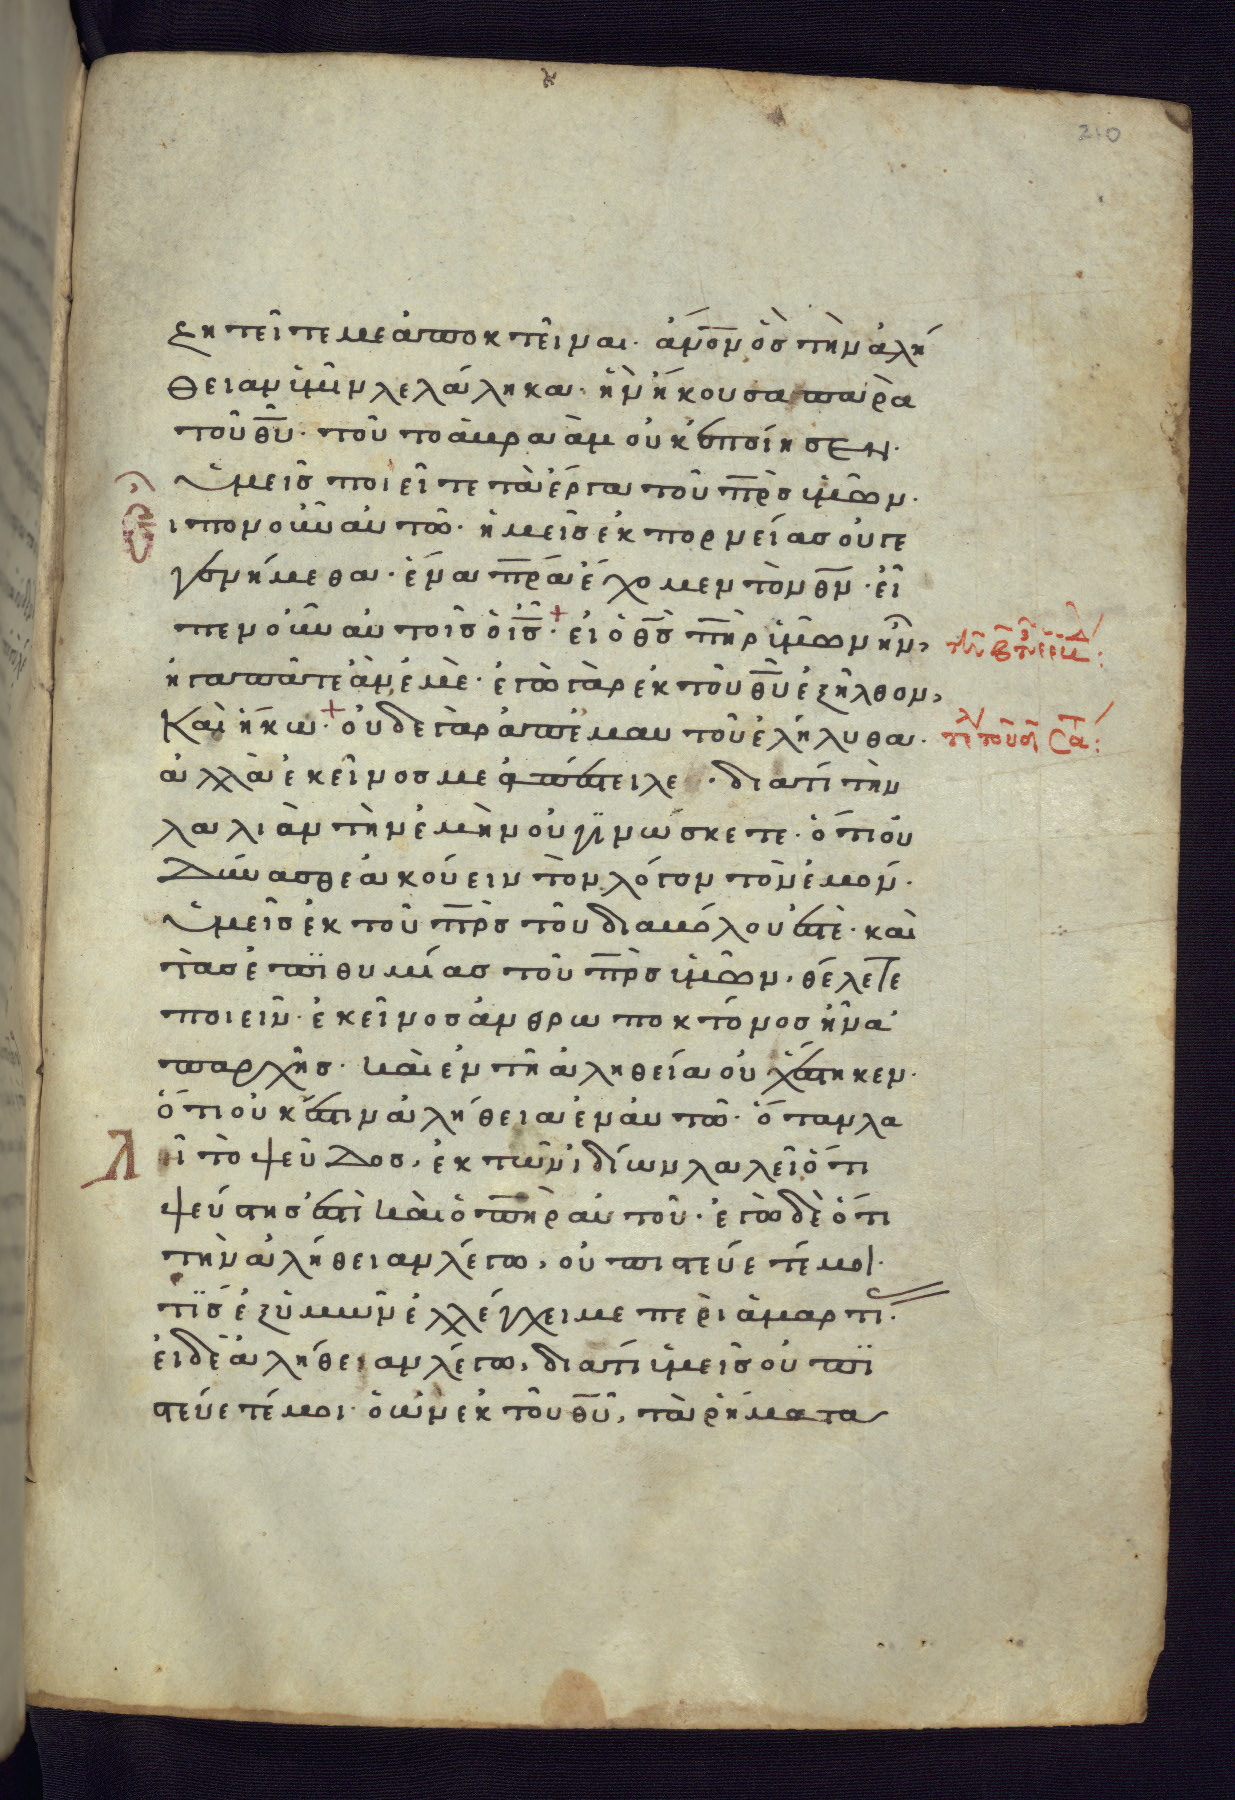 210
ζητεῖτέ με ἀποκτεῖναι· ἀν̅ο̅ν ὃς τὴν ἀλή
θειαν ὑμῖν λελάληκα· ἣν ἤκουσα παρὰ
τοῦ θ̅υ̅· τοῦτο ἁβραὰμ οὐκ ἐποίησεν·
Ὑμεῖς ποιεῖτε τὰ ἔργα τοῦ π̅ρ̅ς ὑμῶν·
Εἶπον οὖν αὐτῶ· ἡμεῖς ἐκ πορνείας οὐ γε
γεννήμεθα· ἕνα π̅ρ̅α ἔχομεν τὸν θ̅ν̅· εἶ
πεν οὖν αὐτοῖς ὁ ι̅ς̅· + εἰ ὁ θ̅ς̅ π̅η̅ρ ὑμῶν ἦν,
ἠγαπᾶτε ἂν ἐμὲ· ἐγὼ γὰρ ἐκ τοῦ θ̅υ̅ ἐξῆλθον,
Καὶ ἥκω· + οὐδὲ γὰρ ἀπ' ἐμαυτοῦ ἐλήλυθα·
ἀλλὰ ἐκεῖνός με ἀπέστειλε· διατί τὴν
λαλιὰν τὴν ἐμὴν οὐ γϊνώσκετε· ὅτι οὐ
Δύνασθε ἀκούειν τὸν λόγον τὸν ἐμόν·
Ὑμεῖς ἐκ τοῦ π̅ρ̅ς τοῦ διαβόλου ἐστὲ· καὶ
τὰς ἐπϊθυμίας τοῦ π̅ρ̅ς ὑμῶν, θέλετε
ποιεῖν· ἐκεῖνος ἀνθρωποκτόνος ἦν ἀ
π' ἀρχῆς· καὶ ἐν τῆ ἀληθεία οὐχ ἕστηκεν·
ὅτι οὐκ ἔστιν ἀλήθεια ἐν αὐτῶ· ὅταν λα
Λῆ τὸ ψεῦδος, ἐκ τῶν ἰδίων λαλεῖ ὅτι
ψεύστης ἐστὶ καὶ ὁ π̅η̅ρ αὐτοῦ· ἐγὼ δὲ ὅτι
τὴν ἀλήθειαν λέγω, οὐ πιστεύετέ μοι·
τϊς ἐξ ὑμῶν ἐλλέγχει με περὶ ἁμαρτι·
εἰ δὲ ἀλήθειαν λέγω, διατί ὑμεῖς οὐ πϊ
στεύετέ μοι· ὁ ὢν ἐκ τοῦ θ̅υ̅, τὰ ῥήματα